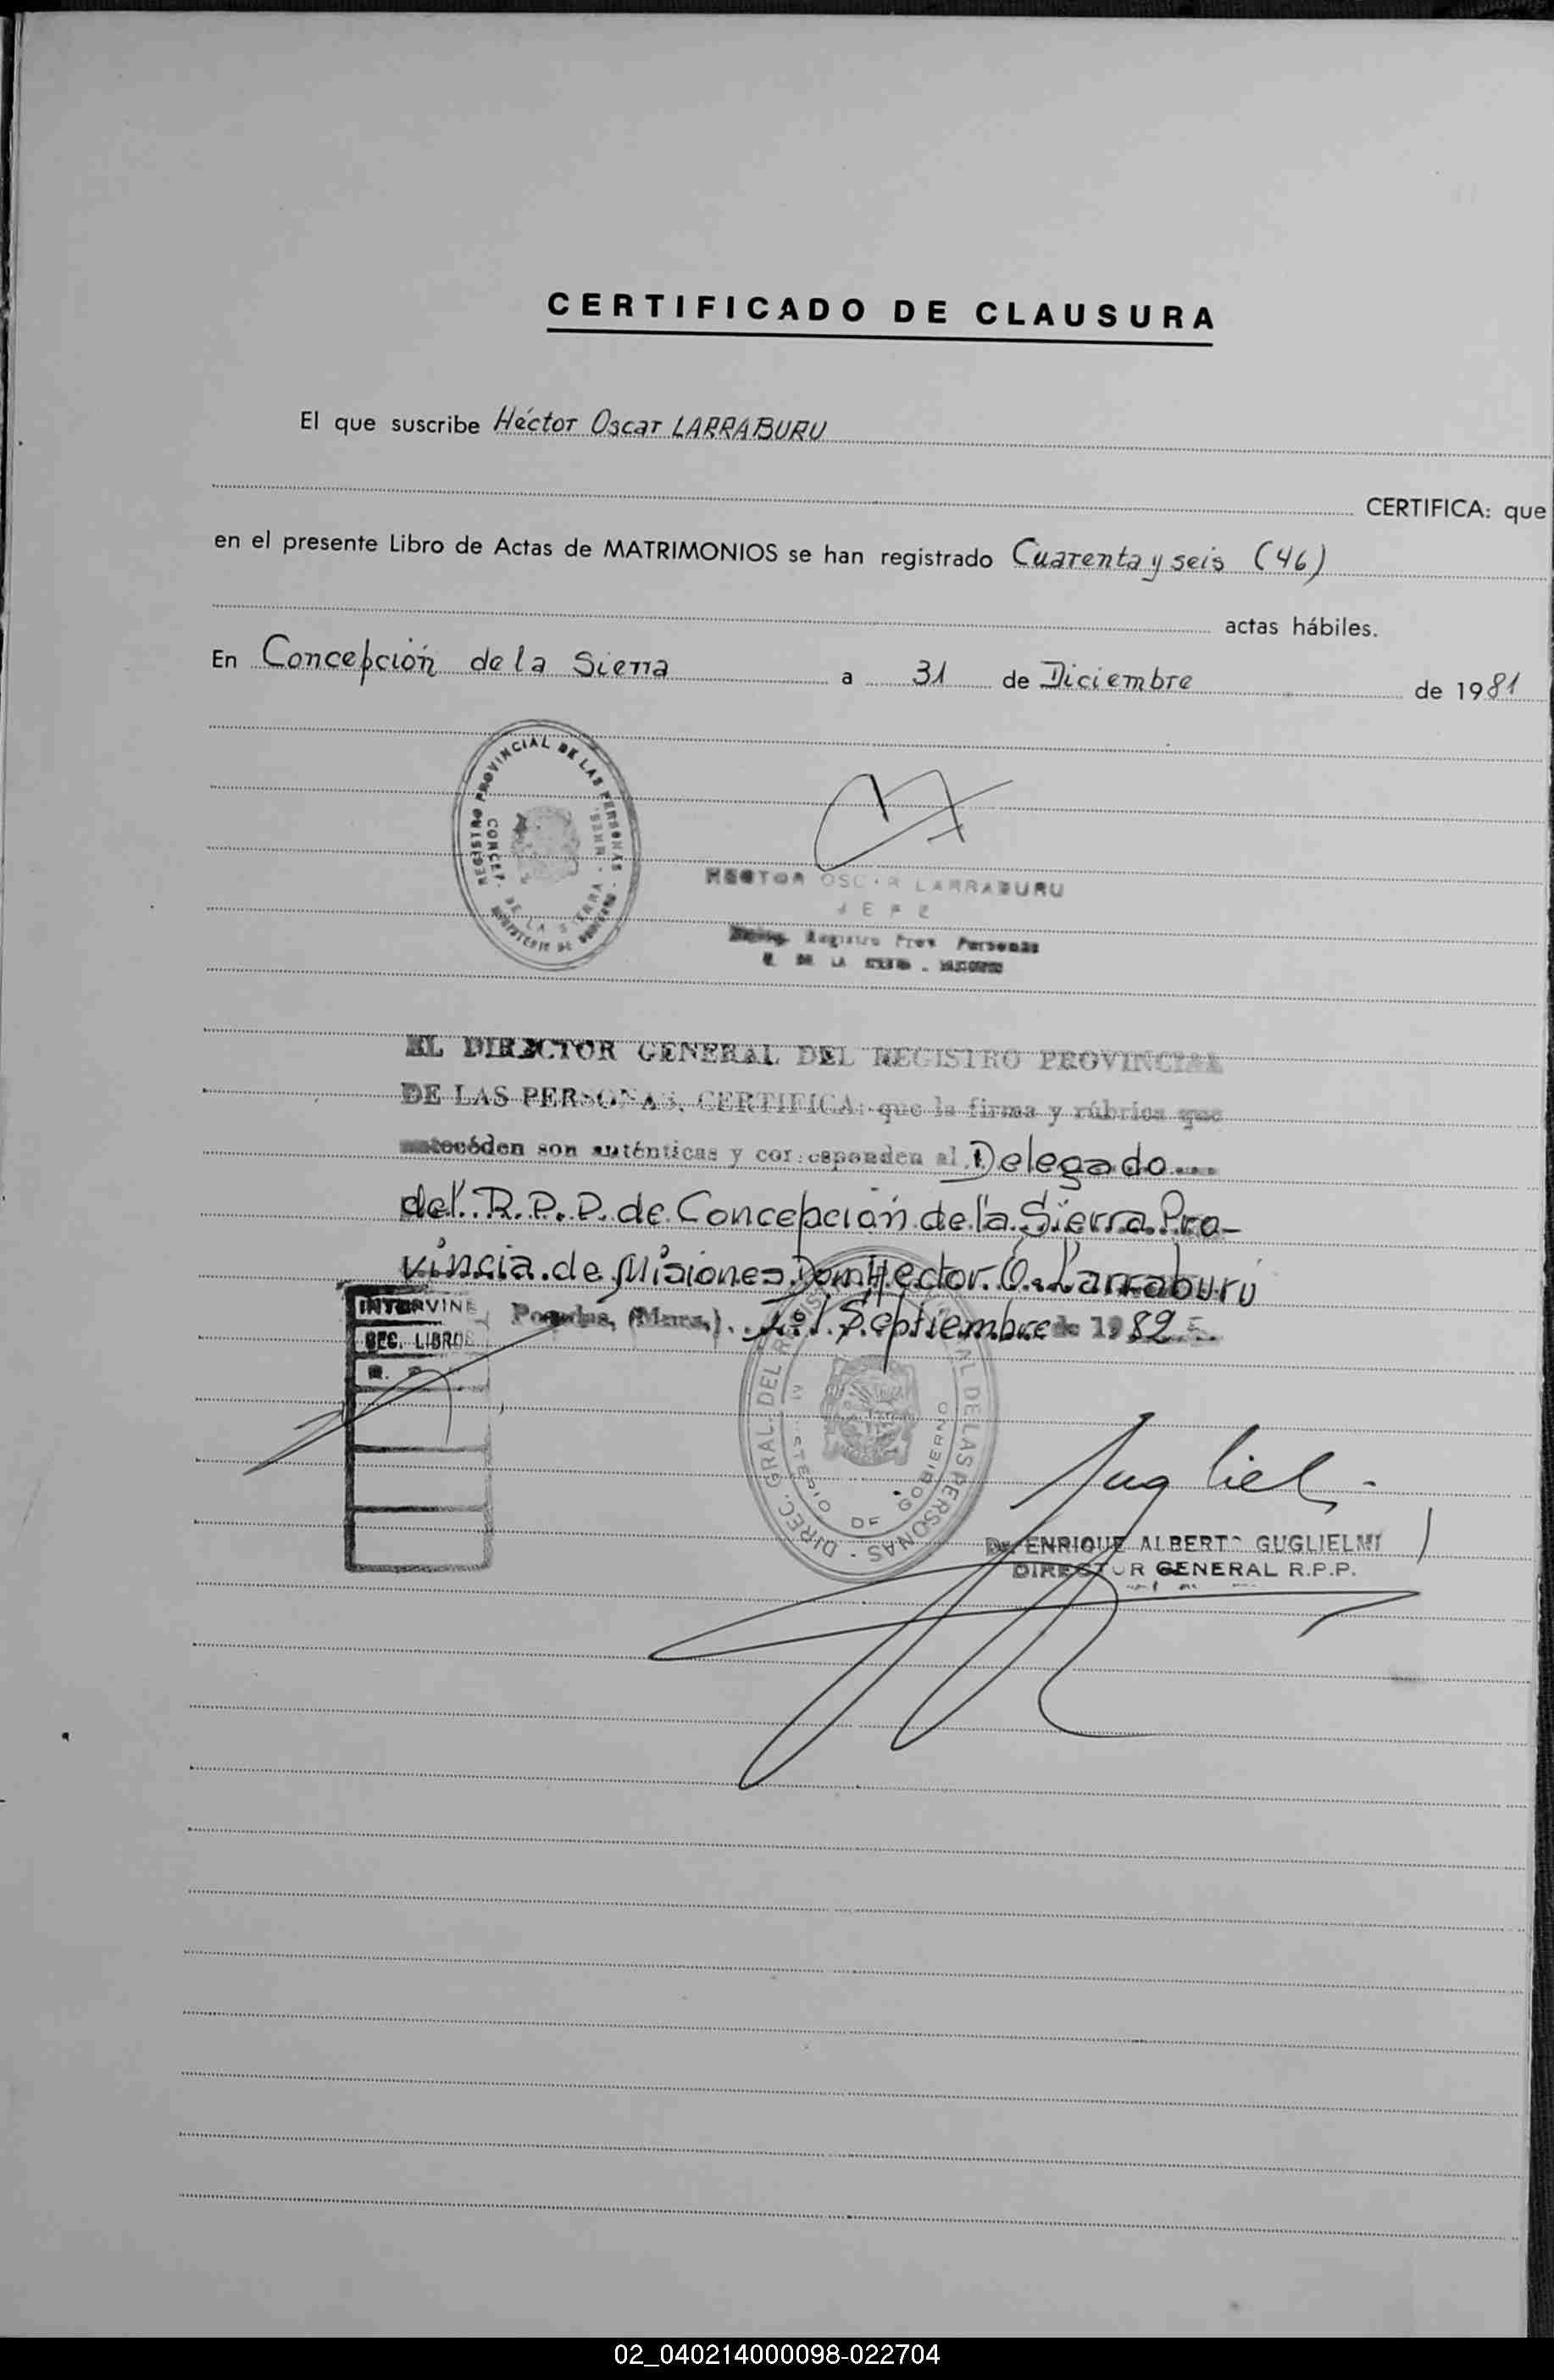 CERTIFICADO DE CLAUSURA
El que suscribe Héctor Oscar LARRABURU
CERTIFICA: que
en el presente Libro de Actas de MATRIMONIOS se han registrado Cuarenta y seis (46)
actas hábiles.
En Concepción de la Sierra a 31 de Diciembre de 1981
REGISTRO PROVINCIAL DE LAS PERSONAS
CONCEP. DE LA SIERRA
HECTOR OSCAR LARRABURU
JEFE
Registro Prov Personas
DE LA
EL DIRECTOR GENERAL DEL REGISTRO PROVINCIAL
DE LAS PERSONAS, CERTIFICA: que la firma y rúbrica que
anteceden son auténticas y corresponden al Delegado
del R.P.P. de Concepción de la Sierra Pro-
vincia de Misiones Don Hector O. Larraburu
Posadas, (Mnes.) 1º Septiembre de 1982
INTERVINE
SEC. LIBROS
DIREC. GRAL. DEL REGISTRO PROVINCIAL DE LAS PERSONAS
MINISTERIO DE GOBIERNO
Dr. ENRIQUE ALBERTO GUGLIELMI
DIRECTOR GENERAL R.P.P.
02_040214000098-022704